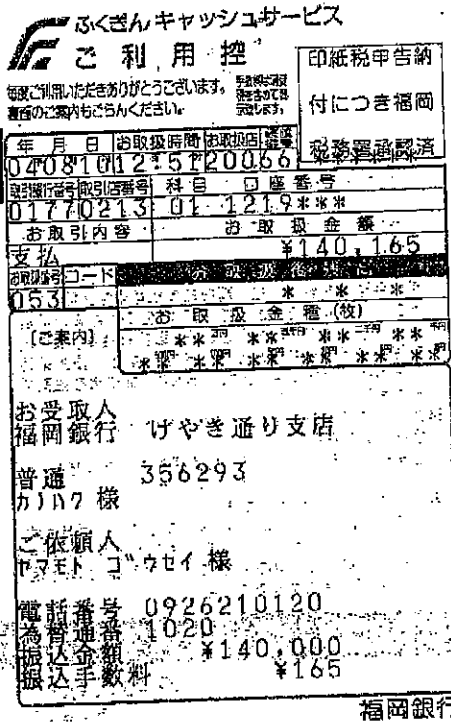 ふくぎんキャッシュサービス
ご利用控
印紙税申告納
付につき福岡
税務署承認済
毎度ご利用いただきありがとうございます。
裏面のご案内もごらんください。
年月日 お取扱時間 お取扱店
040810 12:51 20066
取引銀行番号 取引店番号 科目 口座番号
0177 0213 01 1219***
お取引内容 お取扱金額
支払 ¥140,165
お取扱番号 コード
053 * * *
お取扱金種(枚)
[ご案内]
お受取人
福岡銀行 けやき通り支店
普通 356293
カ)ハク 様
ご依頼人
ヤマモト ゴウセイ 様
電話番号 0926210120
為替通番 1020
振込金額 ¥140,000
振込手数料 ¥165
福岡銀行